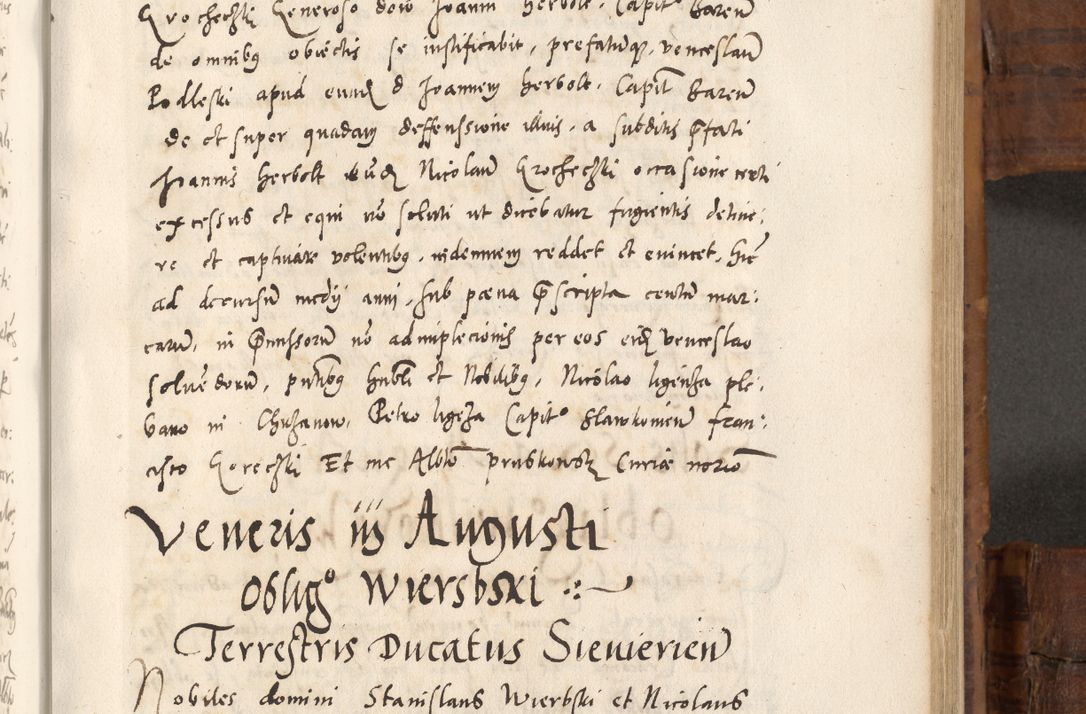 Grochefski Generoso domi Joanni Herbolt, Capit° Bareñ
de omnibꝫ obiectis se iustificabit, prefatumqꝫ venceslaũ
Podleski apud eundẽ d Joannem Herbolt, Capit Bareñ
de et super quadam deffenssione illius, a subditis p̃fati
Joannis Herbolt eũdẽ Nicolaũ Grochefski occasione certi
excessus et equi nõ soluti ut dicebatur fugientis detine,
re et captiuare volentibꝫ, indemnem reddet et euincet, hic
ad decursũ medÿ anni, sub pœna p̃scripta centũ mar:
carũ, in p̃missorũ nõ adimplecionis per eos eidẽ venceslao
soluẽdorũ, pntibꝫ hnbli et Nobilibꝫ, Nicolao ligenza ple,
bano in Chrzanow, Petro ligeza Capit° Slawkowieñ fran:
cisco Gorechski Et me Albto pruskowsky Curiæ notrio
Veneris iij Augusti
Oblig° Wiersbski
Terrestris Ducatus Sieuierieñ
Nobiles domini Stanislaus Wierbski et Nicolaus